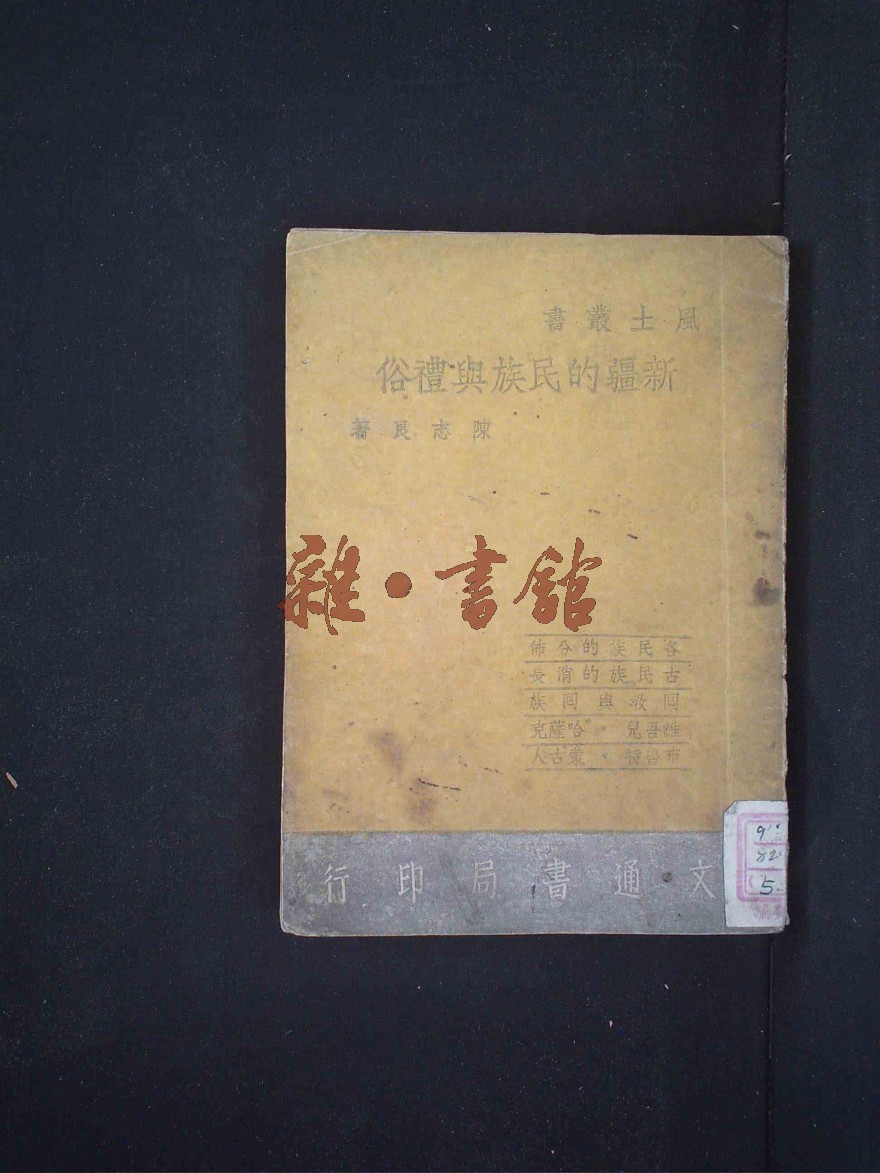 風土叢書
新疆的民族與禮俗
陳志良著
雜·書館
各民族的分佈
古民族的消長
回教與回族
維吾兒·哈薩克
布魯特·蒙古人
文通書局印行
82
5